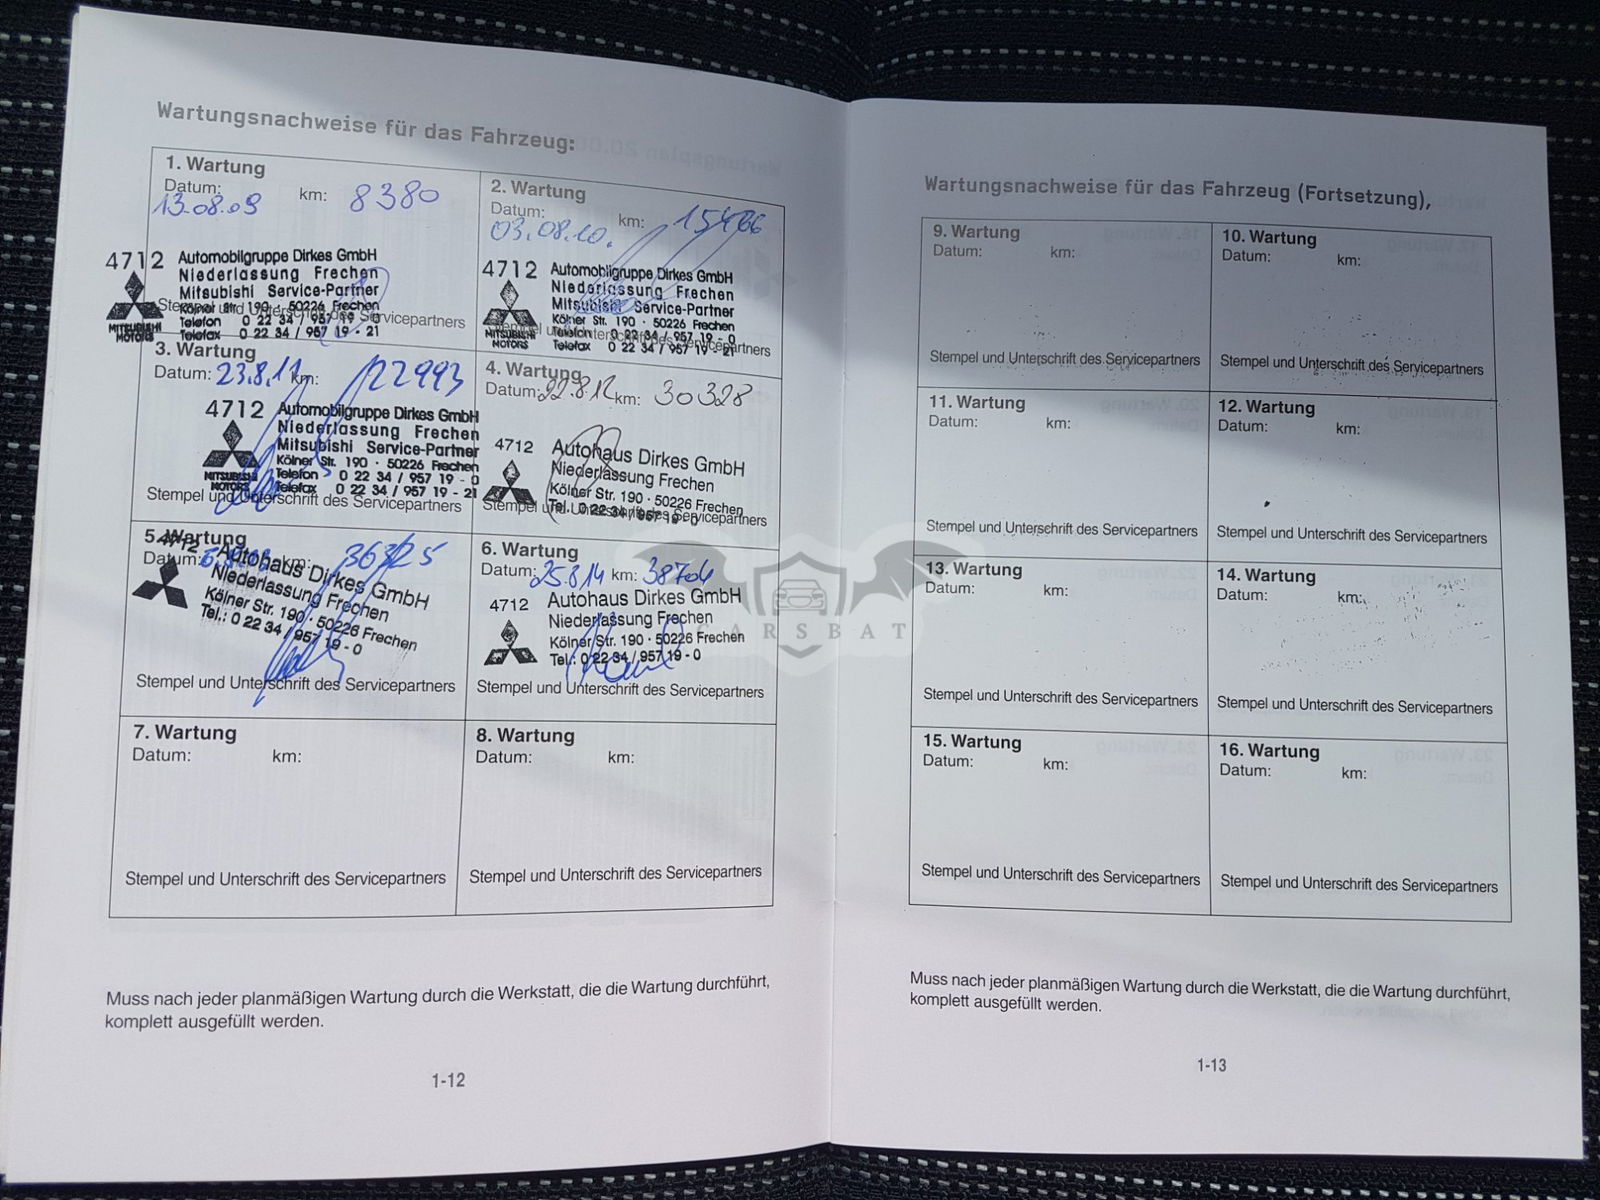 Wartungsnachweise für das Fahrzeug:
1. Wartung
Datum: km: 8380
13.08.09
4712 Automobilgruppe Dirkes GmbH
Niederlassung Frechen
Mitsubishi Service-Partner
Kölner Str. 190 · 50226 Frechen
Stempel und Unterschrift des Servicepartners
Telefon 0 22 34 / 957 19 - 0
Telefax 0 22 34 / 957 19 - 21
MITSUBISHI
MOTORS
2. Wartung
Datum: km: 15466
03.08.10.
4712 Automobilgruppe Dirkes GmbH
Niederlassung Frechen
Mitsubishi Service-Partner
Kölner Str. 190 · 50226 Frechen
Telefon 0 22 34 / 957 19 - 0
Stempel und Unterschrift des Servicepartners
Telefax 0 22 34 / 957 19 - 21
MITSUBISHI
MOTORS
3. Wartung
Datum: 23.8.11 km: 22993
4712 Automobilgruppe Dirkes GmbH
Niederlassung Frechen
Mitsubishi Service-Partner
Kölner Str. 190 · 50226 Frechen
Telefon 0 22 34 / 957 19 - 0
Telefax 0 22 34 / 957 19 - 21
MITSUBISHI
MOTORS
Stempel und Unterschrift des Servicepartners
4. Wartung
Datum: 22.8.12 km: 30328
4712 Autohaus Dirkes GmbH
Niederlassung Frechen
Kölner Str. 190 · 50226 Frechen
Tel.: 0 22 34 / 957 19 - 0
Stempel und Unterschrift des Servicepartners
5. Wartung
Datum: km: 36325
4712 Autohaus Dirkes GmbH
Niederlassung Frechen
Kölner Str. 190 · 50226 Frechen
Tel.: 0 22 34 / 957 19 - 0
Stempel und Unterschrift des Servicepartners
6. Wartung
Datum: 25.8.14 km: 38704
4712 Autohaus Dirkes GmbH
Niederlassung Frechen
Kölner Str. 190 · 50226 Frechen
Tel.: 0 22 34 / 957 19 - 0
Stempel und Unterschrift des Servicepartners
7. Wartung
Datum: km:
Stempel und Unterschrift des Servicepartners
8. Wartung
Datum: km:
Stempel und Unterschrift des Servicepartners
Muss nach jeder planmäßigen Wartung durch die Werkstatt, die die Wartung durchführt,
komplett ausgefüllt werden.
1-12
Wartungsnachweise für das Fahrzeug (Fortsetzung),
9. Wartung
Datum: km:
Stempel und Unterschrift des Servicepartners
10. Wartung
Datum: km:
Stempel und Unterschrift des Servicepartners
11. Wartung
Datum: km:
Stempel und Unterschrift des Servicepartners
12. Wartung
Datum: km:
Stempel und Unterschrift des Servicepartners
13. Wartung
Datum: km:
Stempel und Unterschrift des Servicepartners
14. Wartung
Datum: km:
Stempel und Unterschrift des Servicepartners
15. Wartung
Datum: km:
Stempel und Unterschrift des Servicepartners
16. Wartung
Datum: km:
Stempel und Unterschrift des Servicepartners
Muss nach jeder planmäßigen Wartung durch die Werkstatt, die die Wartung durchführt,
komplett ausgefüllt werden.
1-13
CARSBAT